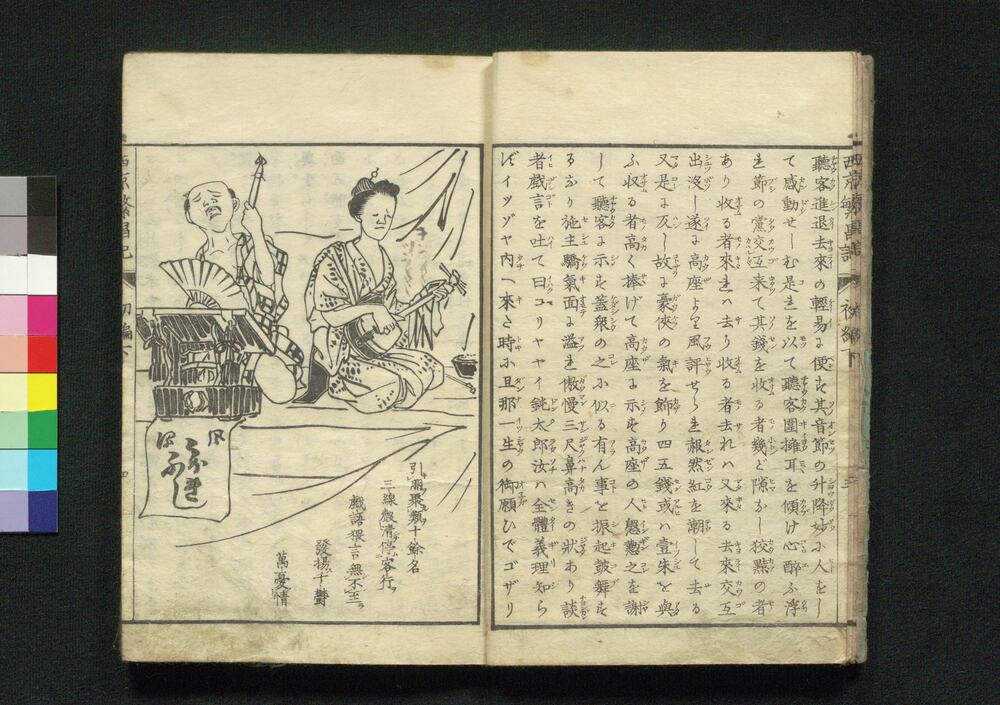 西京繁昌記 初編下
聽客進退去來の輕易に便す其音節の升降妙に人をし
て感動せしむ是を以て聽客圍擁耳を傾け心醉ふ浮
れ節の黨交互來て其錢を收る者幾ど隙なし狡黠の者
あり收る者來れハ去り收る者去れハ又來る去來交互
出沒し遂に高座より風評せられ赧然紅を潮して去る
又是に反し故に豪俠の氣を飾り四五錢或ハ壹朱を與
ふ收る者高く捧げて高座に示す高座の人慇懃之を謝
して聽客に示す蓋衆の之に似る有ん事を振起鼓舞す
るなり施主驕氣面に溢れ傲慢三尺鼻高きの狀あり談
者戲言を吐て曰コリヤヤイ鈍太郎汝ハ全體義理知ら
ずイツゾヤ内へ來た時に旦那一生の御願ひでゴザリ
引朋聚類十餘名
三線聲清停客行
戲語猥言無不至
發揚千鬱
萬憂情
西京繁昌記 初編下